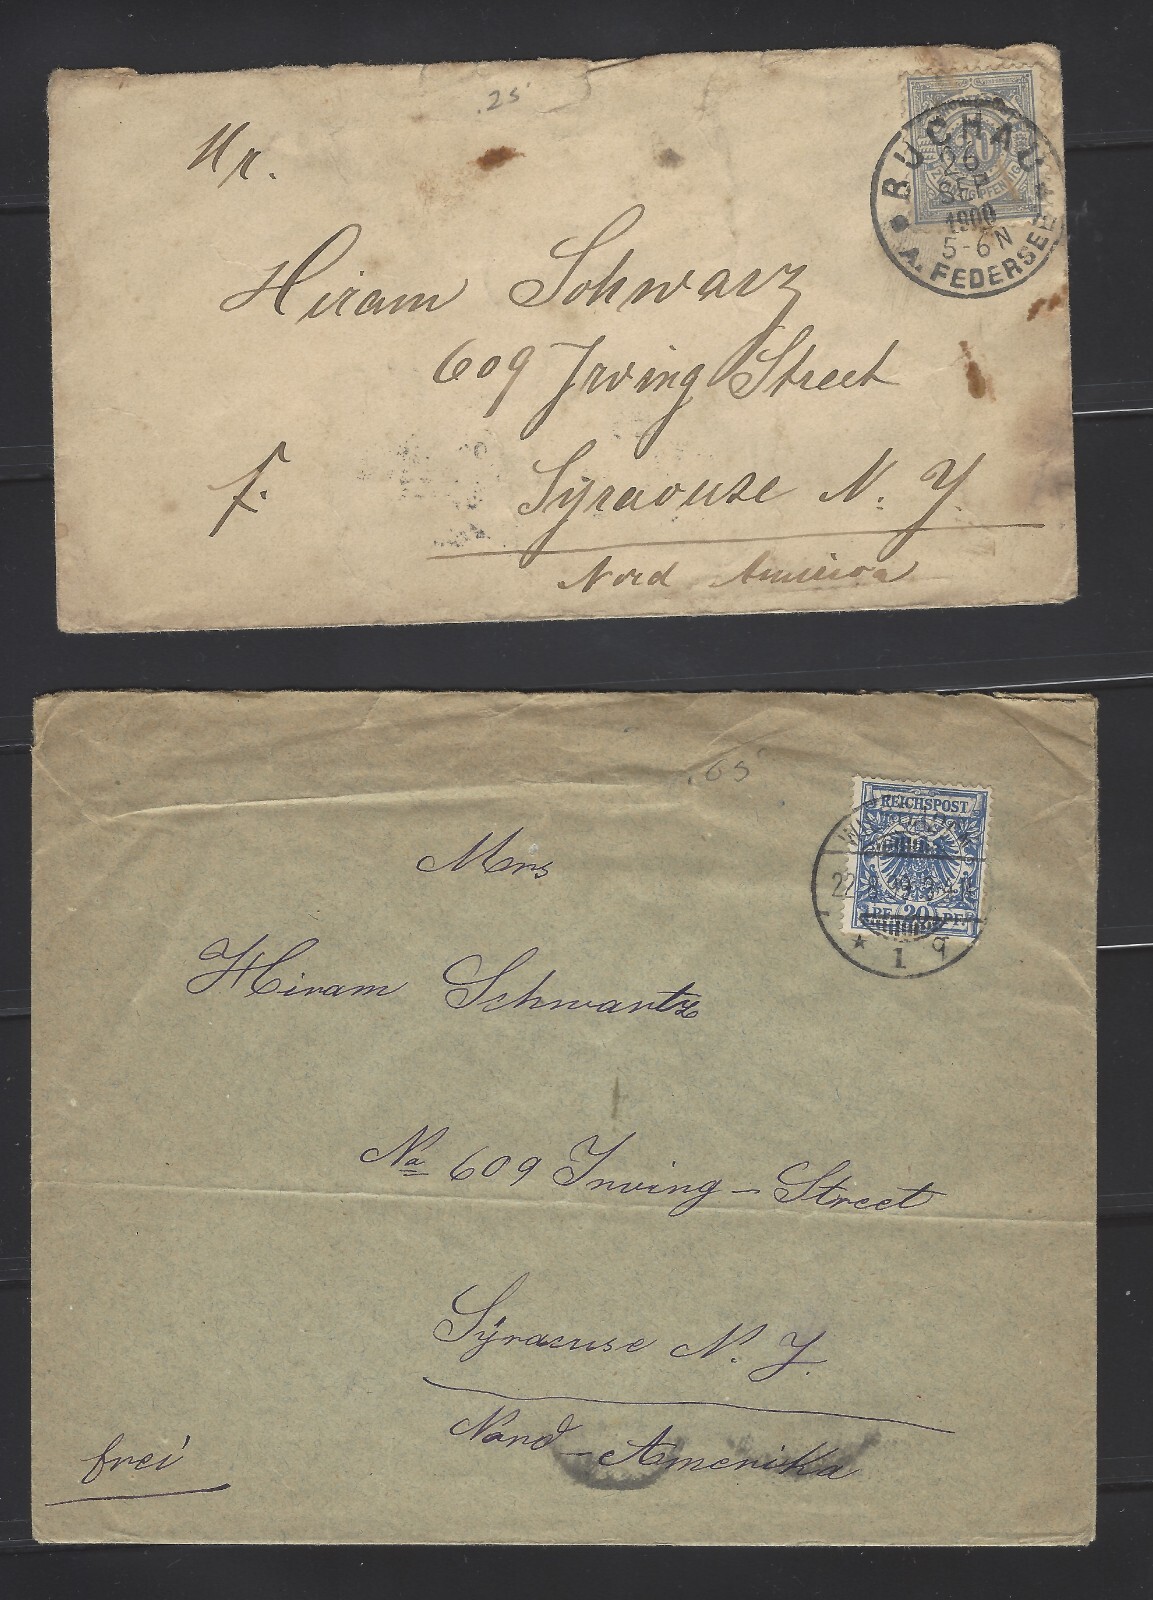 .25
Mr.
Hiram Schwarz
609 Irving Street
f. Syracuse N. Y.
Nord America
BUCHAU
26
SEP
1900
5-6 N
A. FEDERSEE
20
PFENNIG
.65
Mrs
Hiram Schwartz
No 609 Irving-Street
Syracuse N. Y.
Nord-Amerika
frei
REICHSPOST
PF. 20 PF.
22
1 q